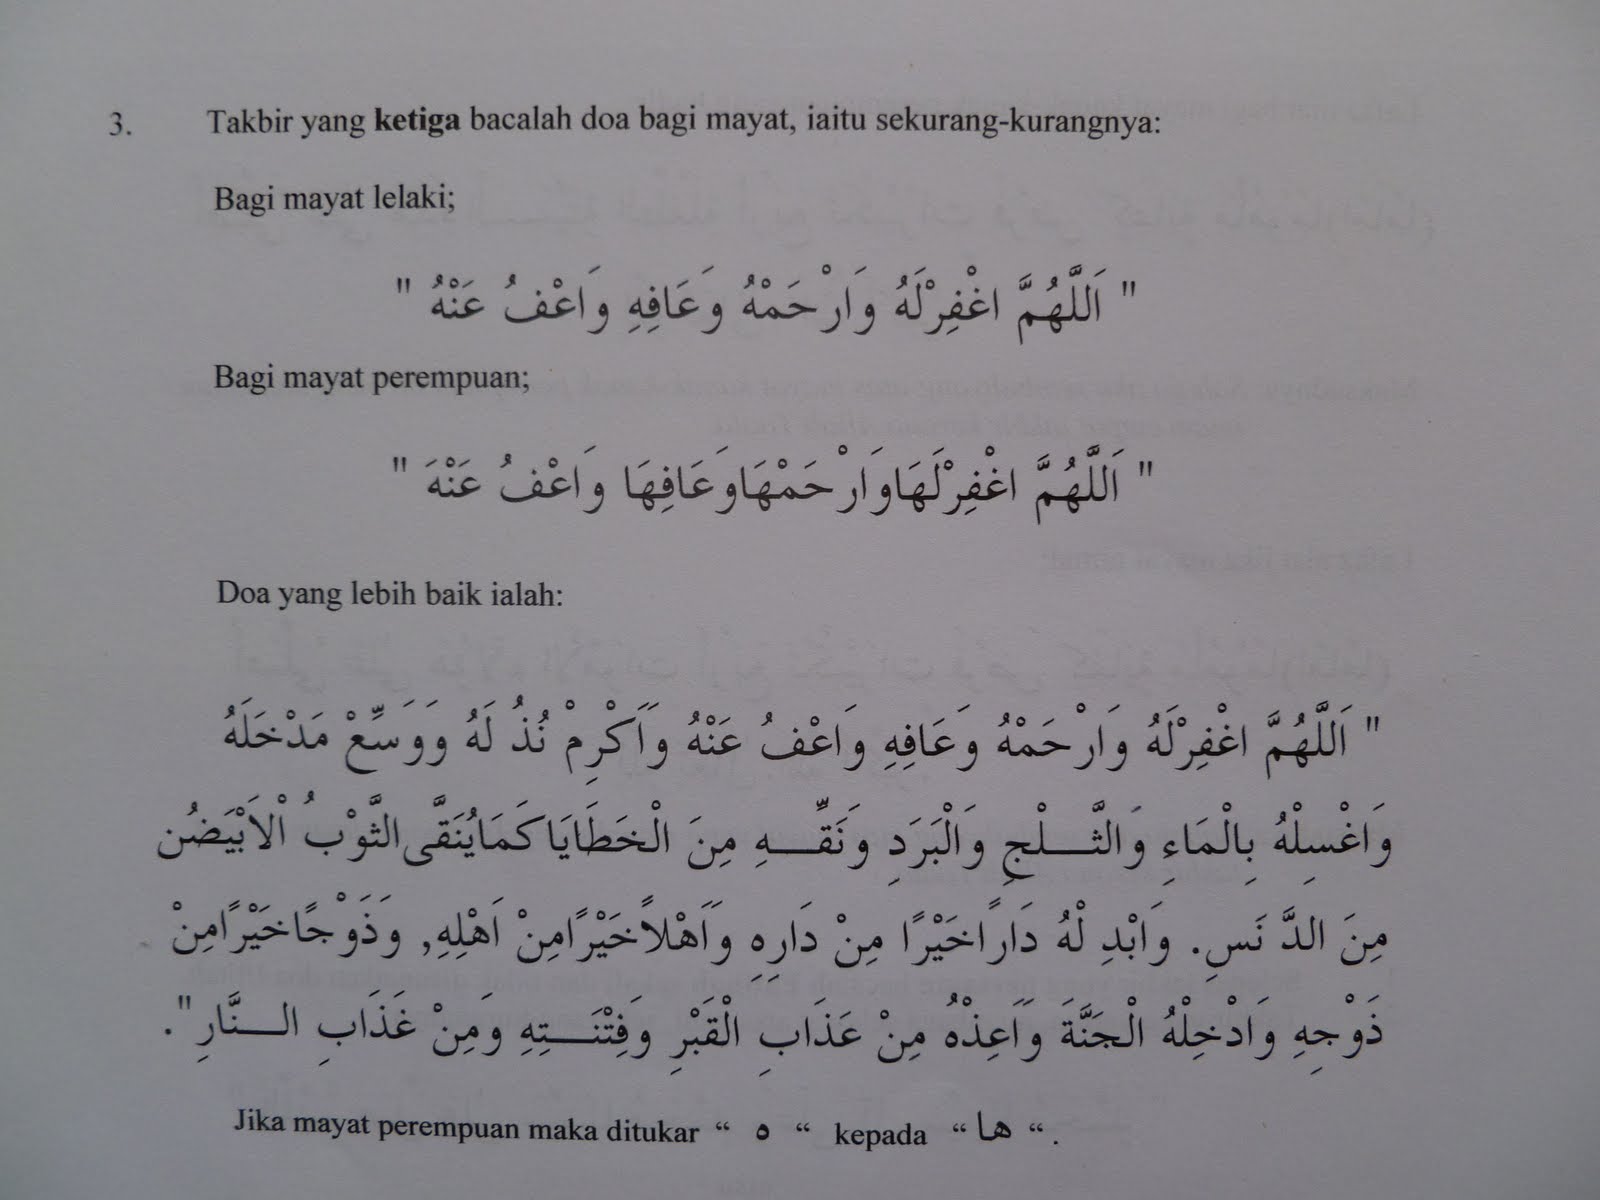 3. Takbir yang ketiga bacalah doa bagi mayat, iaitu sekurang-kurangnya:
Bagi mayat lelaki;
" اَللَّهُمَّ اغْفِرْلَهُ وَارْحَمْهُ وَعَافِهِ وَاعْفُ عَنْهُ "
Bagi mayat perempuan;
" اَللَّهُمَّ اغْفِرْلَهَاوَارْحَمْهَاوَعَافِهَا وَاعْفُ عَنْهَ "
Doa yang lebih baik ialah:
" اَللَّهُمَّ اغْفِرْلَهُ وَارْحَمْهُ وَعَافِهِ وَاعْفُ عَنْهُ وَاَكْرِمْ نُذُ لَهُ وَوَسِّعْ مَدْخَلَهُ
وَاغْسِلْهُ بِالْمَاءِ وَالثَّـــلْجِ وَالْبَرَدِ وَنَقِّـــهِ مِنَ الْخَطَايَا كَمَايُنَقَّى الثَّوْبُ الْاَبْيَضُن
مِنَ الدَّ نَسِ. وَابْدِ لْهُ دَارًاخَيْرًا مِنْ دَارِهِ وَاَهْلاًخَيْرًامِنْ اَهْلِهِ, وَذَوْجًاخَيْرًامِنْ
ذَوْجِهِ وَادْخِلْهُ الْجَنَّةَ وَاَعِذْهُ مِنْ عَذَابِ الْقَبْرِ وَفِتْنَـــتِهِ وَمِنْ غَذَابِ الـــنَّارِ".
Jika mayat perempuan maka ditukar “ ه “ kepada “ ها “ .